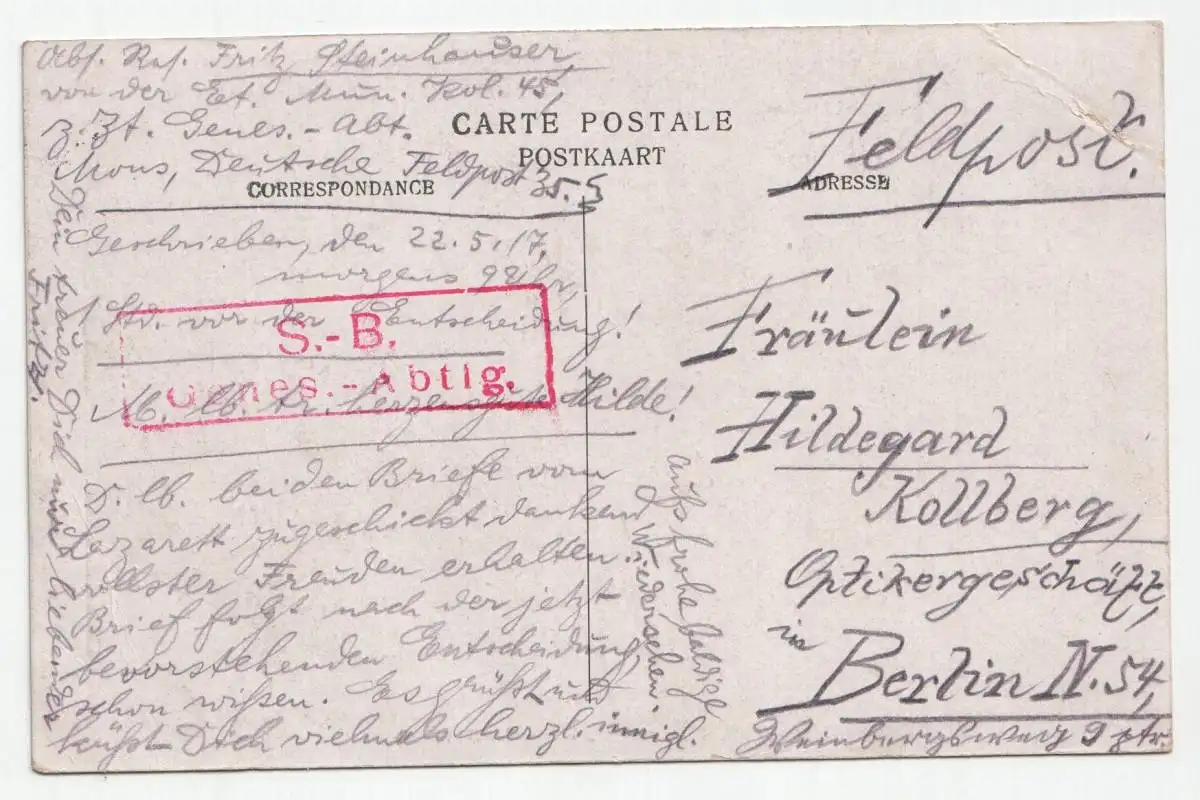 Abs. Ras. Fritz Steinhauser,
von der Et. Mun. Kol. 45,
z. Zt. Genes.-Abt.
Mons, Deutsche Feldpost 35.
CARTE POSTALE
POSTKAART
CORRESPONDANCE
ADRESSE
Geschrieben, den 22.5.17,
morgens 9 Uhr,
1 Std. vor der Entscheidung!
S.-B.
Genes.-Abtlg.
M. lb. tr. herzensgute Hilde!
D. lb. beiden Briefe vom
Lazarett zugeschickt dankend
vollster Freuden erhalten.
Brief folgt nach der jetzt
bevorstehenden Entscheidung,
schon wißen. Es grüßt und
küßt Dich vielmals herzl. innigl.
aufs frohe baldige
Wiedersehen!
Dein treuer Dich nur liebender
Fritz.
Feldpost.
Fräulein
Hildegard
Kollberg,
Optikergeschäft,
in
Berlin N. 54,
Weinbergsweg 9 ptr.